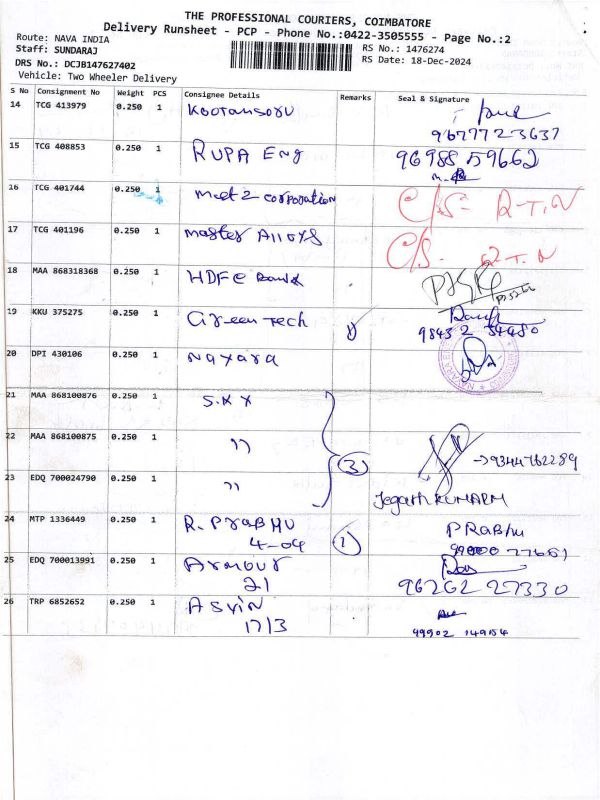 THE PROFESSIONAL COURIERS, COIMBATORE
Delivery Runsheet - PCP - Phone No.:0422-3505555 - Page No.:2
Route: NAVA INDIA
Staff: SUNDARAJ
RS No.: 1476274
DRS No.: DCJB147627402
RS Date: 18-Dec-2024
Vehicle: Two Wheeler Delivery
S No Consignment No Weight PCS Consignee Details Remarks Seal & Signature
14 TCG 413979 0.250 1
9677723637
15 TCG 408853 0.250 1 RUPA Eng 96988 59662
16 TCG 401744 0.250 1 corporation C/S- R.T.N
17 TCG 401196 0.250 1 Master Alloys C/S- R.T.N
18 MAA 868318368 0.250 1 HDFC Bank
19 KKU 375275 0.250 1 Green Tech
98432 34480
20 DPI 430106 0.250 1 Nayara
21 MAA 868100876 0.250 1 S.K.Y
22 MAA 868100875 0.250 1 " (3) →9344762289
23 EDQ 700024790 0.250 1 "
24 MTP 1336449 0.250 1 R. PraBHU (1) PRABHU
4-04
25 EDQ 700013991 0.250 1 Armour
21 96262 27330
26 TRP 6852652 0.250 1 ASVIN
17/3